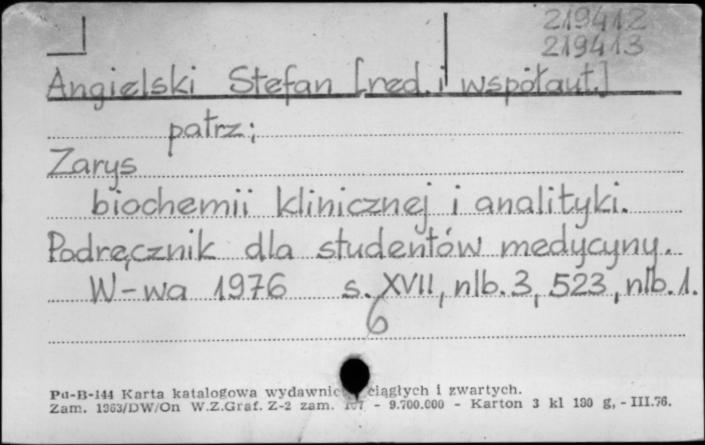 219412
219413
Angielski Stefan [red. i współaut.]
patrz:
Zarys
biochemii klinicznej i analityki.
Podręcznik dla studentów medycyny.
W-wa 1976 s. XVII, nlb. 3, 523, nlb. 1.
6
Pu-B-144 Karta katalogowa wydawnic ciągłych i zwartych.
Zam. 1363/DW/On W.Z.Graf. Z-2 zam. - 9.700.000 - Karton 3 kl 180 g, - III.76.